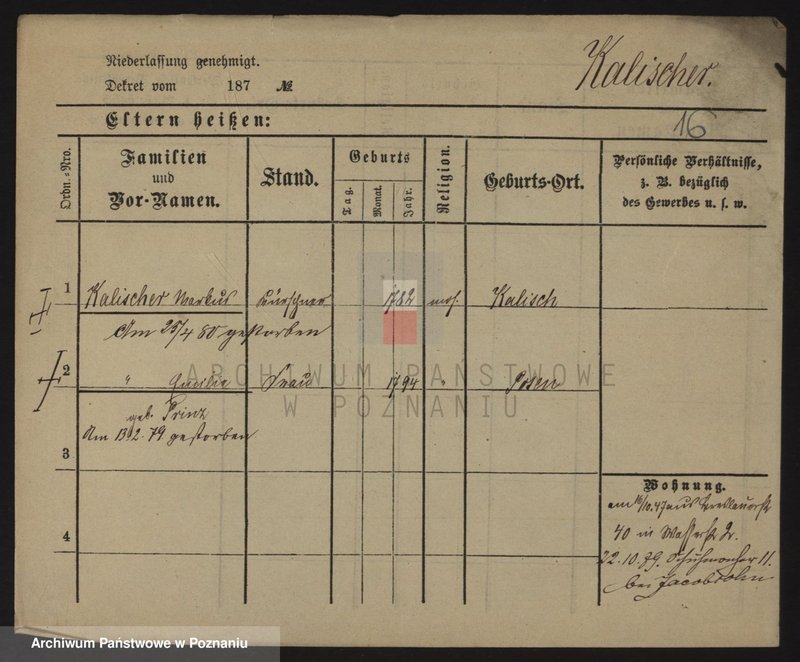 Niederlassung genehmigt.
Kalischer.
Dekret vom 187 №
Eltern heißen:
16
Ordn.-Nro.
Familien
und
Vor-Namen.
Stand.
Geburts
Tag.
Monat.
Jahr.
Religion.
Geburts-Ort.
Persönliche Verhältnisse,
z. B. bezüglich
des Gewerbes u. s. w.
1 Kalischer Markus Kürschner 1782 mos. Kalisch
Am 25/4 80 gestorben
2 " Caecilie Frau 1794 " Posen
geb. Prinz
Am 13/2. 79 gestorben
3
4
Wohnung.
am 16/10. 47 aus Breslauerstr
40 in Wasserstr 2.
22.10.79. Schuhmacher 11.
bei Jacobsohn
ARCHIWUM PAŃSTWOWE
W POZNANIU
Archiwum Państwowe w Poznaniu